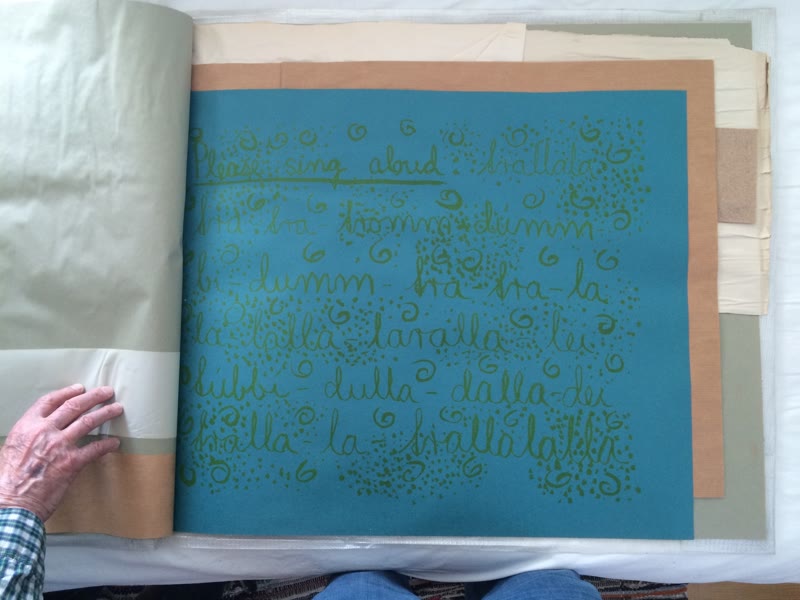 Please sing aloud: trallala
tra tra tromm-dumm-
bi-dumm-tra tra-la
la-lalla-laralla-lei-
dubbi-dulla-dalla-dei
tralla la-trallalalla